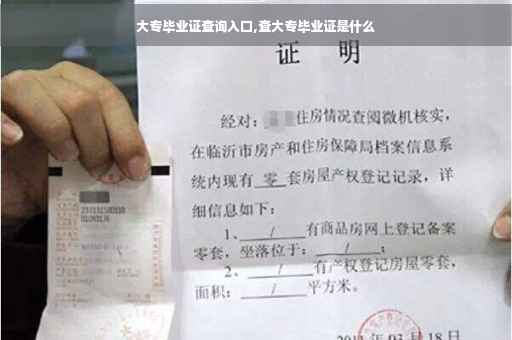 大专毕业证查询入口,查大专毕业证是什么
证 明
经对：住房情况查阅微机核实，
在临沂市房产和住房保障局档案信息系
统内现有 零 套房屋产权登记记录，详
细信息如下：
1、 / 有商品房网上登记备案
零套，坐落位于： / ；
2、 / 有产权登记房屋零套，
面积： / 平方米。
03月18日